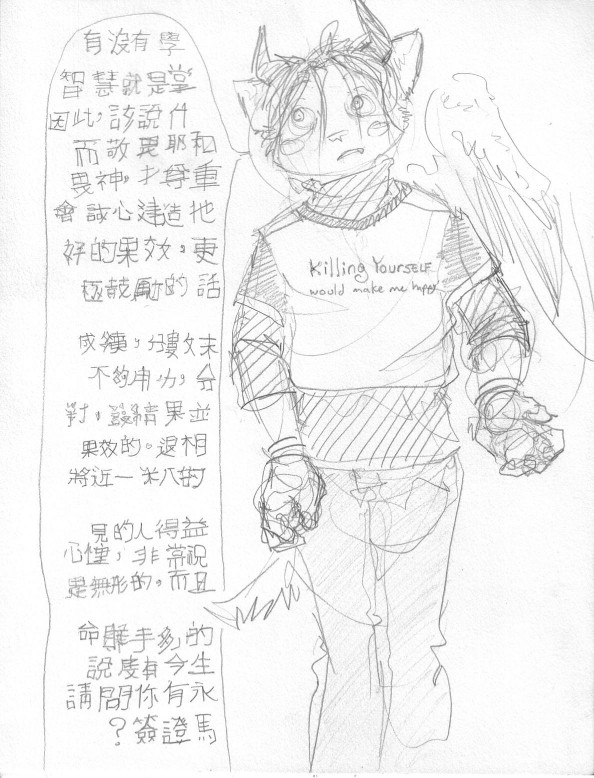 有沒有學
智慧就是掌
因此，該說什
而敬畏耶和
畏神，才尊重
會誠心建造他
好的果效，更
極鼓勵的話
成績，分數文末
不夠用功，分
對，發結果並
果效的。退相
將近一米八的
見的人得益
心懂，非常祝
是無形的。而且
命難手多的
說度有今生
請問你有永
？簽證馬
Killing YOURSELF
would make me happy